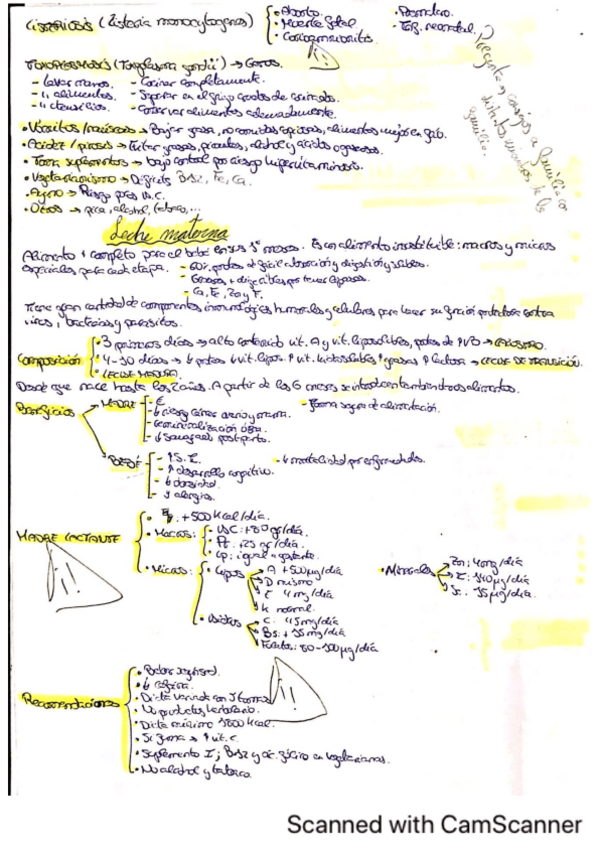 LISTERIOSIS (Listeria monocytogenes)
• Aborto.
• Muerte fetal
• Corioamnionitis.
• Parto prem.
• Inf. neonatal.
TOXOPLASMOSIS (Toxoplasma gondii) → Gatos.
- Lavar manos.
- " alimentos.
- " utensilios.
- Cocinar completamente.
- Separar en el frigo crudos de cocinados.
- Conservar alimentos adecuadamente.
• Vómitos/náuseas → Bajar grasa, no comidas copiosas, alimentos mejor en
• Acidez / pirosis → Evitar grasas, picantes, alcohol y ácidos
• Toma suplementos → bajo control por riesgo hipervitaminosis.
• Vegetarianismo → Déficits B12, Fe, Ca.
• Ayuno → Riesgo para
• Otros → pica, alcohol, tabaco,...
Leche materna
Alimento + completo para el bebé en sus 1os meses. Es un alimento insustituible: macros y micros
especiales para cada etapa.
- 60% protes de fácil absorción y digestión y
- Grasas + digeribles por tener lipasas.
- Ca, Fe, Zn y F.
Tiene gran cantidad de componentes inmunológicos humorales y celulares para hacer su función protectora contra
virus, bacterias y parásitos.
Composición
• 3 primeros días → alto contenido vit. A y vit. liposolubles, protes de ↑VB → CALOSTRO.
• 4-10 días → ↓ protes ↓ vit. lipos. ↑ vit. hidrosolubles ↑ grasas ↑ lactosa → LECHE DE TRANSICIÓN.
• LECHE MADURA.
Desde que nace hasta los 2 años. A partir de los 6 meses se introducen también otros alimentos.
Beneficios
MADRE
- ↓ riesgo cáncer ovario y mama.
- remineralización ósea.
- ↓ sangrado postparto.
- Forma segura de alimentación.
BEBÉ
- ↑ S.I.
- ↑ desarrollo cognitivo.
- ↓ obesidad.
- ↓ alergias.
- ↓ mortalidad por enfermedades.
MADRE LACTANTE
• E: +500 Kcal/día.
• Macros:
• HC: +80 gr/día.
• Pt: +25 gr/día.
• Lp: igual a gestante.
• Micros:
• Lipos
A +500μg/día
D mismo
E 4 mg/día
K normal.
• Hidros
C: 45mg/día
Folatos: 60-100μg/día
• Minerales
Zn: 4mg/día
I: 140μg/día
Se: 15μg/día.
Recomendaciones
• Beber
• ↓ cafeína.
• Dieta variada con 5 tomas
• No productos herbolario.
• Dieta mínimo 1800 Kcal.
• Si fuma → ↑ vit. C.
• Suplemento I; B12 y ác. fólico en vegetarianas.
• No alcohol y tabaco
Scanned with CamScanner